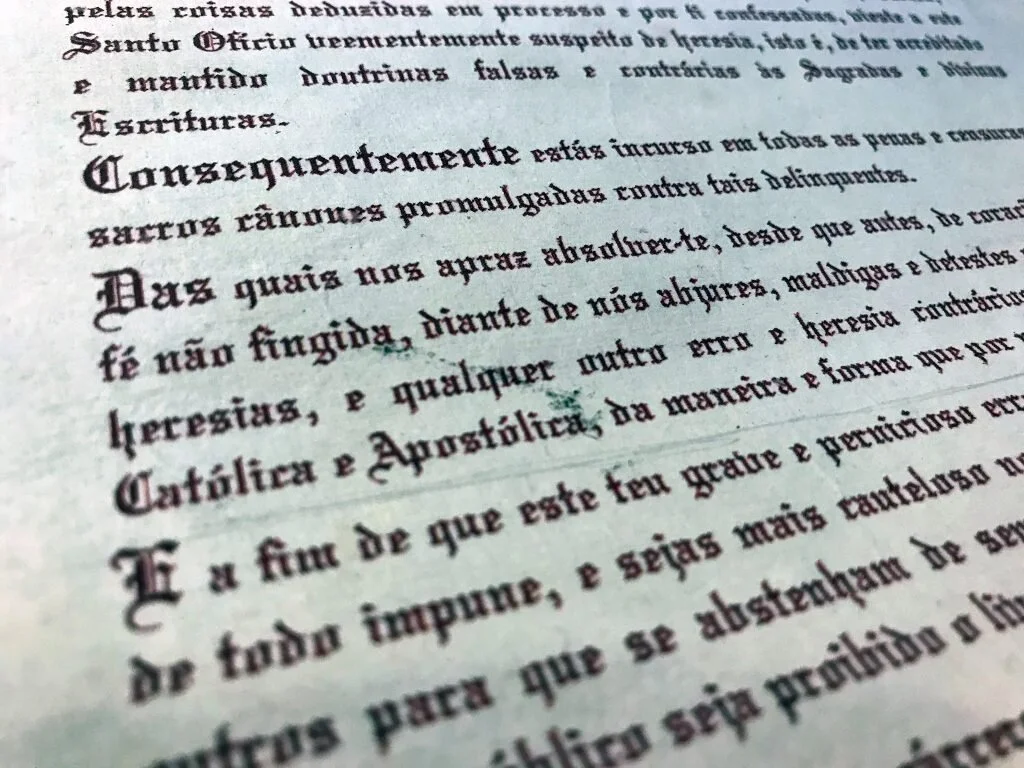 pelas coisas deduzidas em processo e por ti confessadas, deste a este
Santo Ofício veementemente suspeito de heresia, isto é, de ter acreditado
e mantido doutrinas falsas e contrárias às Sagradas e Divinas
Escrituras.
Consequentemente estás incurso em todas as penas e censuras
sacros cânones promulgadas contra tais delinquentes.
Das quais nos apraz absolver-te, desde que antes, de
fé não fingida, diante de nós abjures, maldigas e detestes
heresias, e qualquer outro erro e heresia
Católica e Apostólica, da maneira e forma que por
E a fim de que este teu grave e pernicioso
de todo impune, e sejas mais cauteloso
outros para que se abstenham de
seja proibido o